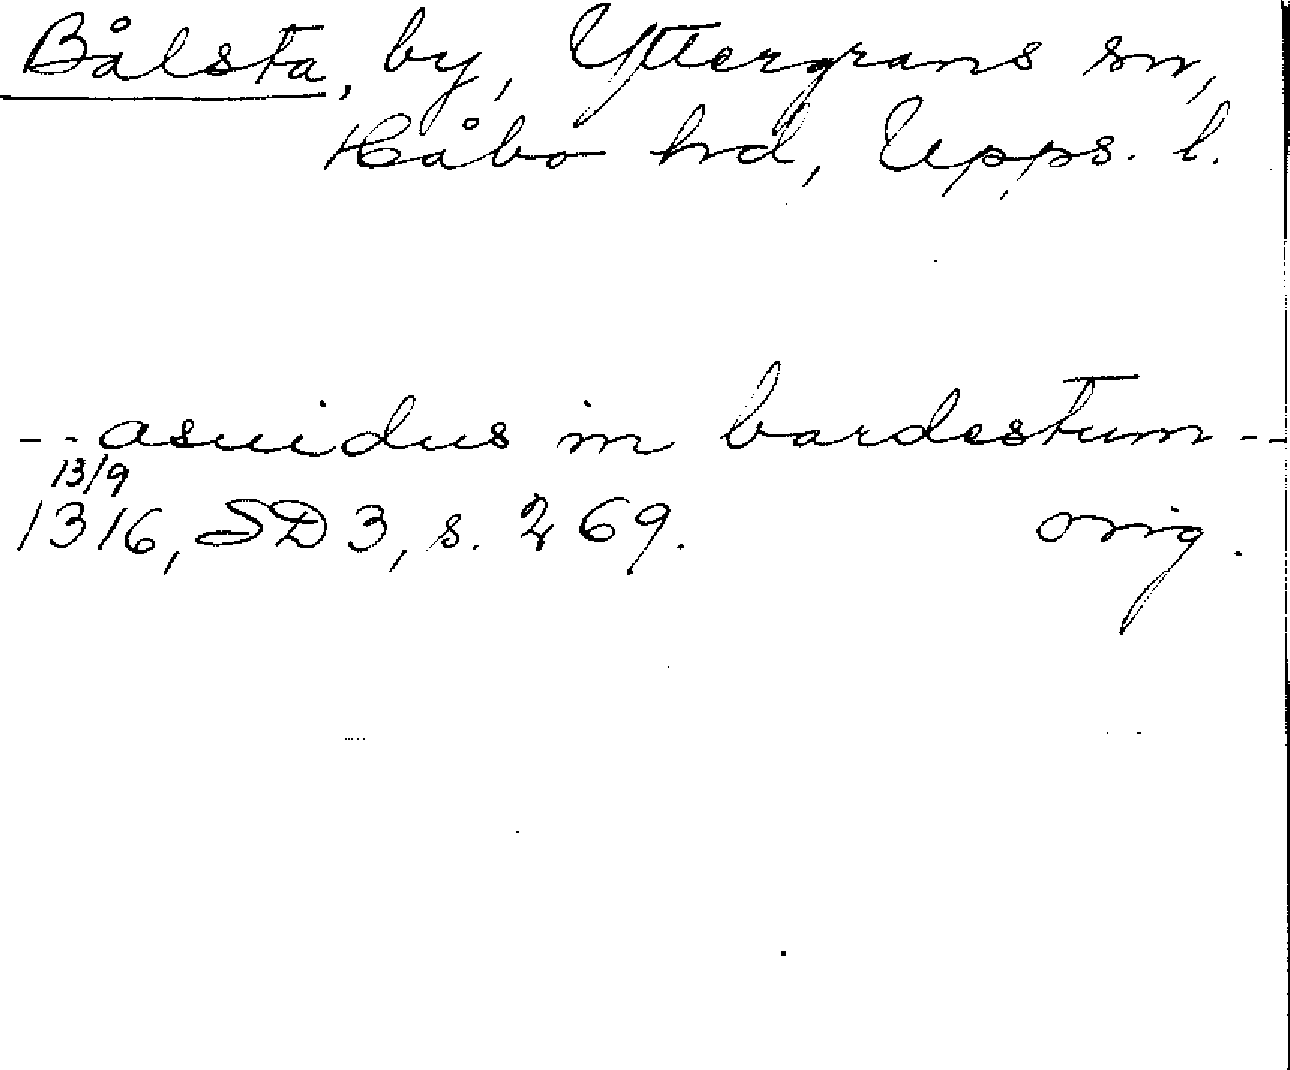 Bålsta, by, Yttergrans sn,
Håbo hd, Upps. l.
-- asuidus in bardestum --
13/9
1316, SD 3, s. 269. orig.